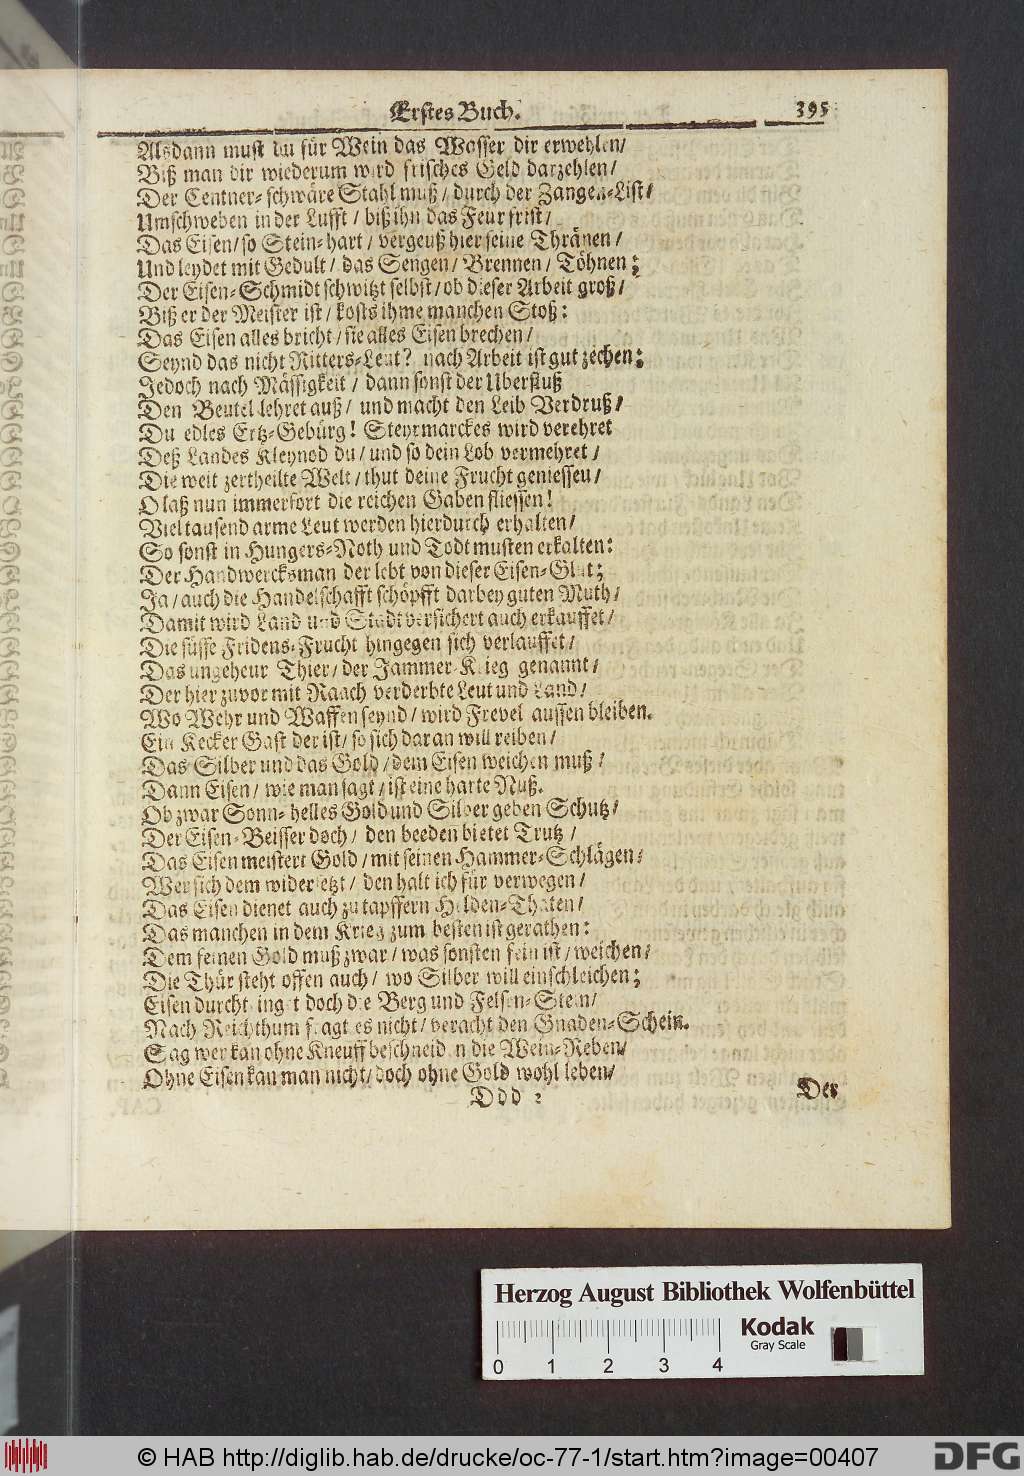 Erstes Buch. 395
Alsdann must du für Wein das Wasser dir erwehlen/
Biß man dir wiederum wird frisches Geld darzehlen/
Der Centner-schwäre Stahl muß/ durch der Zangen-List/
Umschweben in der Lufft/ biß ihn das Feur frist/
Das Eisen/ so Stein-hart/ vergeuß hier seine Thränen/
Und leydet mit Gedult/ das Sengen/ Brennen/ Töhnen;
Der Eisen-Schmidt schwitzt selbst/ ob dieser Arbeit groß/
Biß er der Meister ist/ kosts ihme manchen Stoß:
Das Eisen alles bricht/ sie alles Eisen brechen/
Seynd das nicht Ritters-Leut? nach Arbeit ist gut zechen;
Jedoch nach Mässigkeit/ dann sonst der Uberfluß
Den Beutel lehret auß/ und macht den Leib Verdruß/
Du edles Ertz-Gebürg! Steyrmarckes wird verehret
Deß Landes Kleynod du/ und so dein Lob vermehret/
Die weit zertheilte Welt/ thut deine Frucht geniesseu/
O laß nun immerfort die reichen Gaben fliessen!
Viel tausend arme Leut werden hierdurch erhalten/
So sonst in Hungers-Noth und Todt musten erkalten:
Der Handwercksman der lebt von dieser Eisen-Glut;
Ja/ auch die Handelschafft schöpfft darbey guten Muth/
Damit wird Land und Stadt versichert auch erkauffet/
Die süsse Fridens-Frucht hingegen sich verlauffet/
Das ungeheur Thier/ der Jammer-Krieg genannt/
Der hier zuvor mit Raach verderbte Leut und Land/
Wo Wehr und Waffen seynd/ wird Frevel aussen bleiben.
Ein Kecker Gast der ist/ so sich daran will reiben/
Das Silber und das Gold/ dem Eisen weichen muß/
Dann Eisen/ wie man sagt/ ist eine harte Nuß.
Ob zwar Sonn-helles Gold und Silber geben Schutz/
Der Eisen-Beisser doch/ den beeden bietet Trutz/
Das Eisen meistert Gold/ mit seinen Hammer-Schlägen/
Wer sich dem widersetzt/ den halt ich für verwegen/
Das Eisen dienet auch zu tapffern Helden-Thaten/
Das manchen in dem Krieg zum besten ist gerathen:
Dem feinen Gold muß zwar/ was sonsten fein ist/ weichen/
Die Thür steht offen auch/ wo Silber will einschleichen;
Eisen durchtringet doch die Berg und Felsen-Stein/
Nach Reichthum fragt es nicht/ veracht den Gnaden-Schein.
Sag wer kan ohne Kneuff beschneiden die Wein-Reben/
Ohne Eisen kan man nicht/ doch ohne Gold wohl leben/
Ddd 2 Der
Herzog August Bibliothek Wolfenbüttel
Kodak
Gray Scale
0 1 2 3 4
© HAB http://diglib.hab.de/drucke/oc-77-1/start.htm?image=00407
DFG